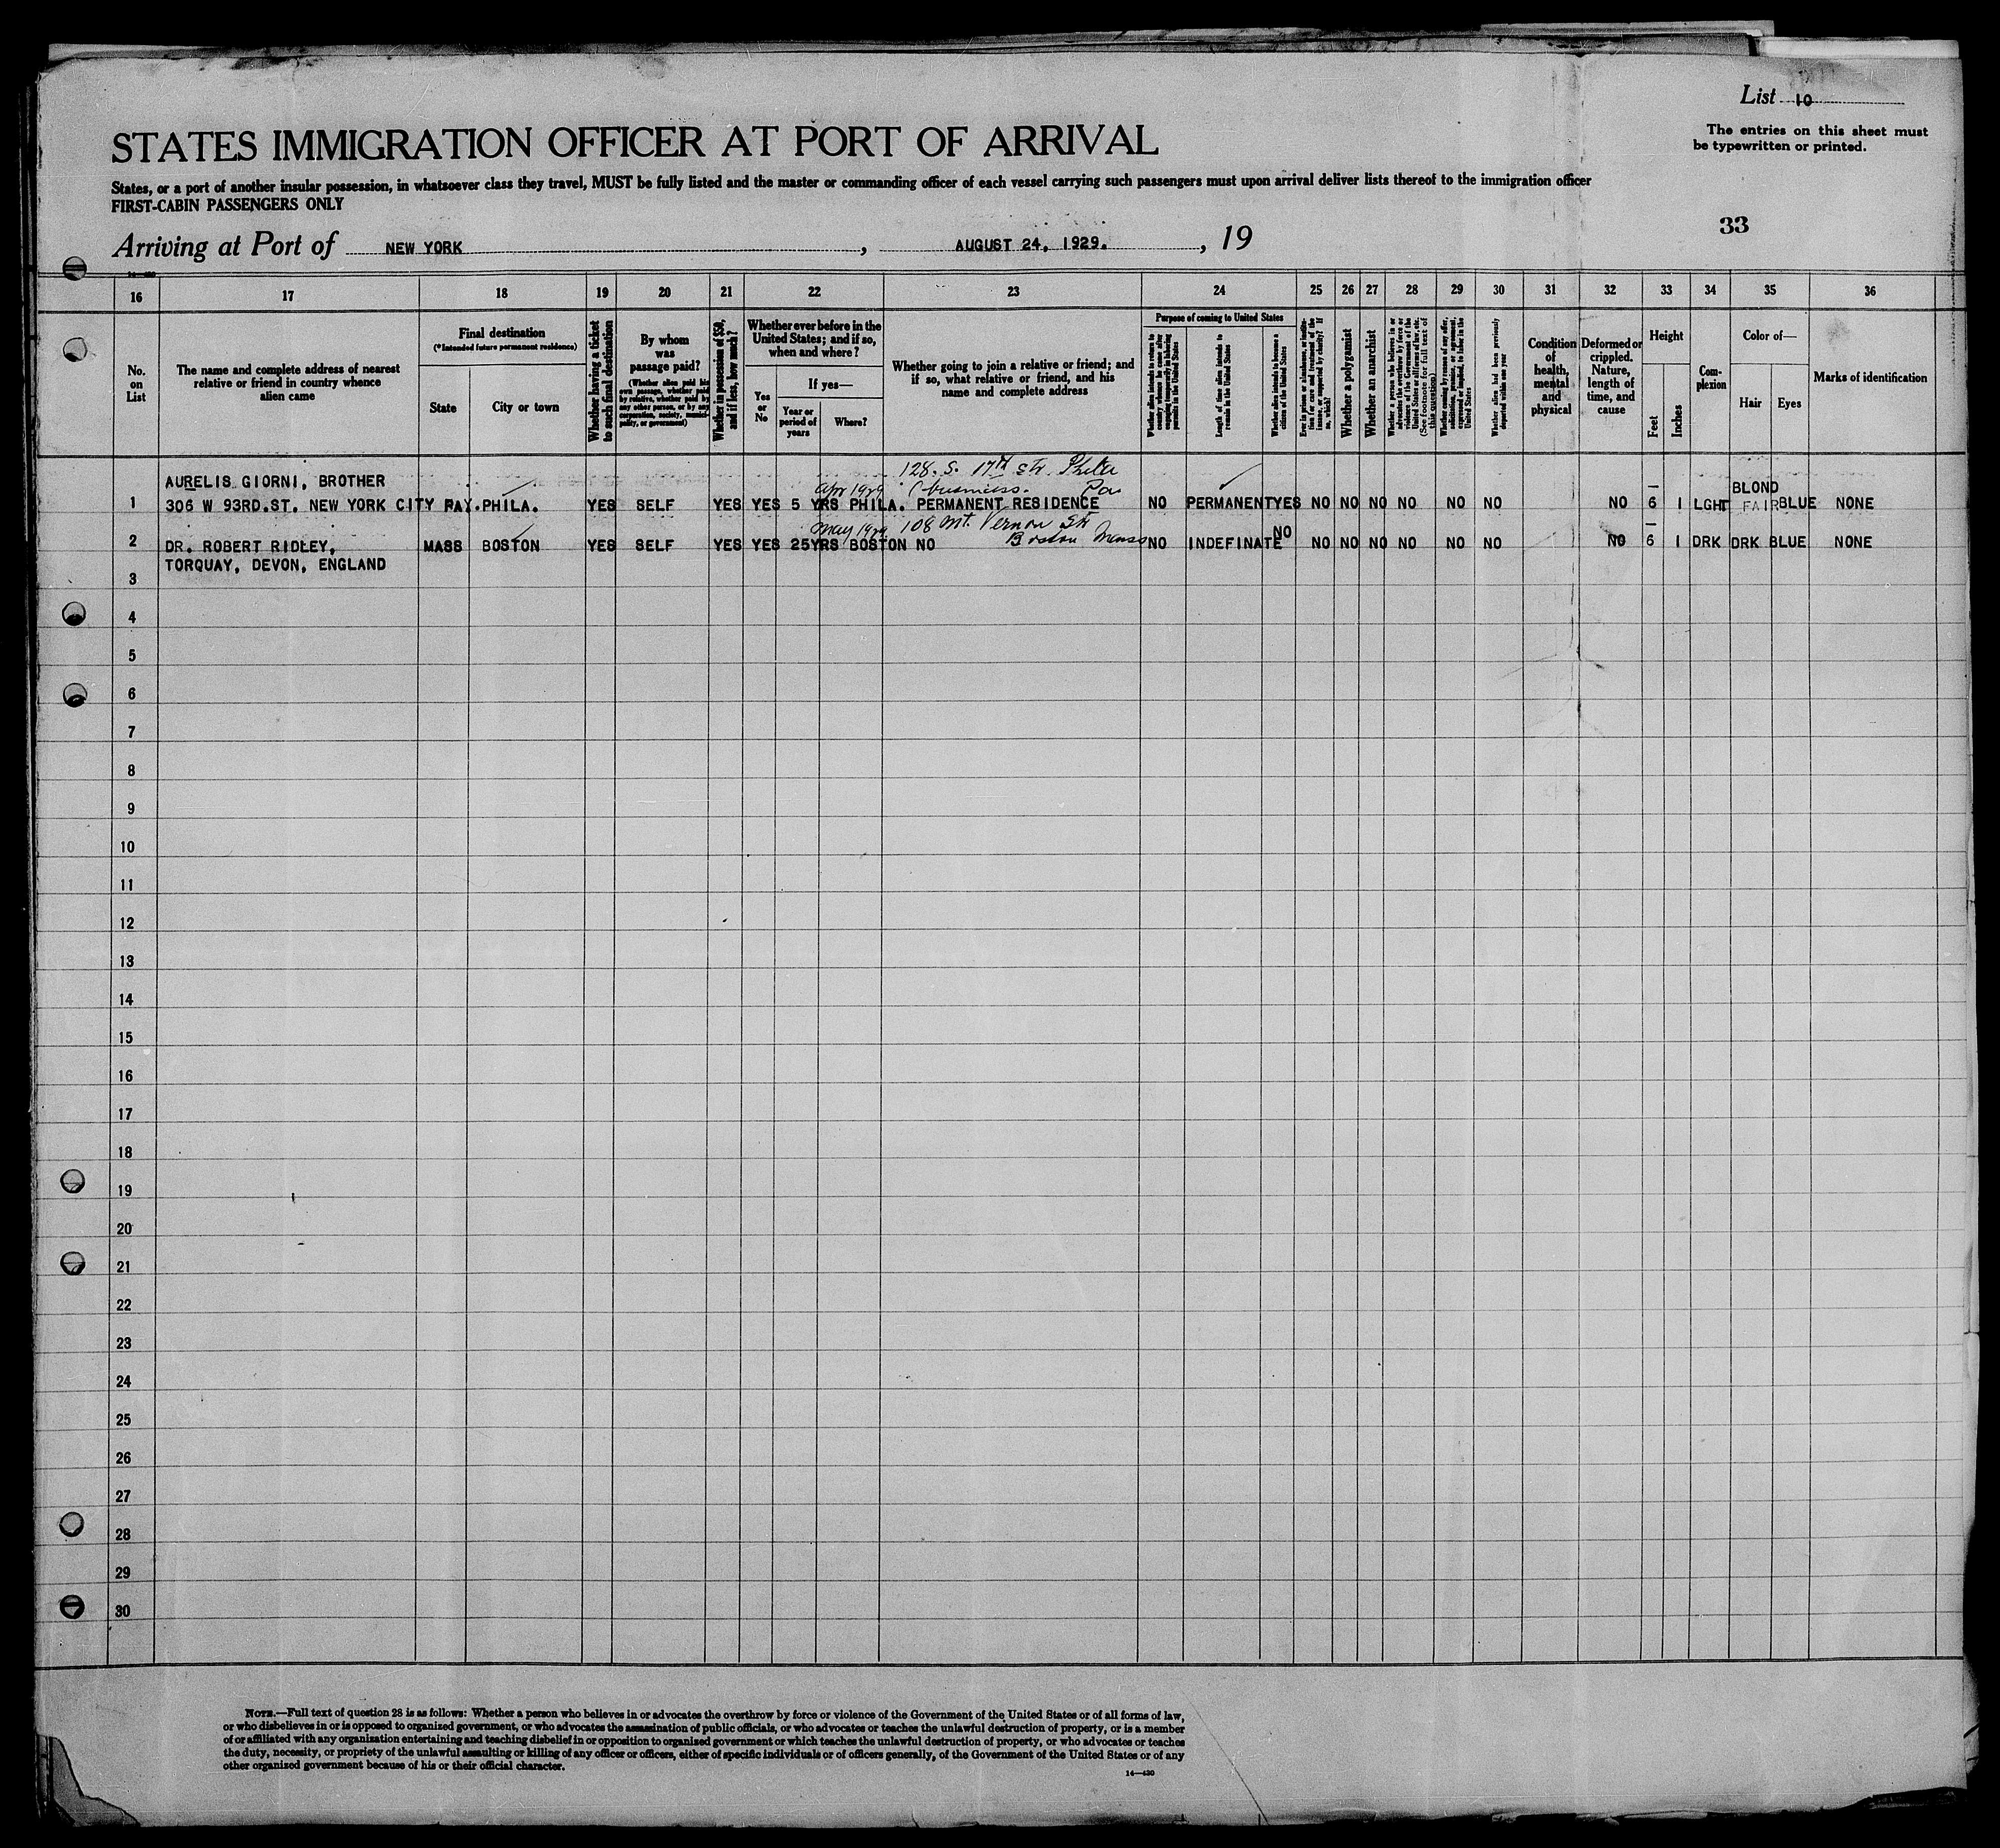 List 10
The entries on this sheet must
be typewritten or printed.
STATES IMMIGRATION OFFICER AT PORT OF ARRIVAL
States, or a port of another insular possession, in whatsoever class they travel, MUST be fully listed and the master or commanding officer of each vessel carrying such passengers must upon arrival deliver lists thereof to the immigration officer
FIRST-CABIN PASSENGERS ONLY
33
Arriving at Port of NEW YORK , AUGUST 24, 1929. , 19
16 17 18 19 20 21 22 23 24 25 26 27 28 29 30 31 32 33 34 35 36
No. on List
The name and complete address of nearest relative or friend in country whence alien came
Final destination
(*Intended future permanent residence)
State
City or town
Whether having a ticket to such final destination
By whom was passage paid?
(Whether alien paid his own passage, whether paid by relative, whether paid by any other person, or by any corporation, society, municipality, or government)
Whether in possession of $50, and if less, how much?
Whether ever before in the United States; and if so, when and where?
Yes or No
If yes—
Year or period of years
Where?
Whether going to join a relative or friend; and if so, what relative or friend, and his name and complete address
Purpose of coming to United States
Length of time alien intends to remain in the United States
Whether alien intends to become a citizen of the United States
Whether a polygamist
Whether an anarchist
Whether alien had been previously deported within one year
Condition of health, mental and physical
Deformed or crippled. Nature, length of time, and cause
Height
Feet
Inches
Complexion
Color of—
Hair
Eyes
Marks of identification
128. S. 17th str. Phila
AURELIS GIORNI, BROTHER Apr 1929 (business. Pa. BLOND
1 306 W 93RD.ST. NEW YORK CITY PAY.PHILA. YES SELF YES YES 5 YRS PHILA. PERMANENT RESIDENCE NO PERMANENT YES NO NO NO NO NO NO NO 6 1 LGHT FAIR BLUE NONE
May 1929 108 Mt. Vernon Str Boston Mass NO
2 DR. ROBERT RIDLEY, MASS BOSTON YES SELF YES YES 25YRS BOSTON NO NO INDEFINATE NO NO NO NO NO NO NO 6 1 DRK DRK BLUE NONE
TORQUAY, DEVON, ENGLAND
3
4
5
6
7
8
9
10
11
12
13
14
15
16
17
18
19
20
21
22
23
24
25
26
27
28
29
30
NOTE.—Full text of question 28 is as follows: Whether a person who believes in or advocates the overthrow by force or violence of the Government of the United States or of all forms of law,
or who disbelieves in or is opposed to organized government, or who advocates the assassination of public officials, or who advocates or teaches the unlawful destruction of property, or is a member
of or affiliated with any organization entertaining and teaching disbelief in or opposition to organized government or which teaches the unlawful destruction of property, or who advocates or teaches
the duty, necessity, or propriety of the unlawful assaulting or killing of any officer or officers, either of specific individuals or of officers generally, of the Government of the United States or of any
other organized government because of his or their official character.
14—430